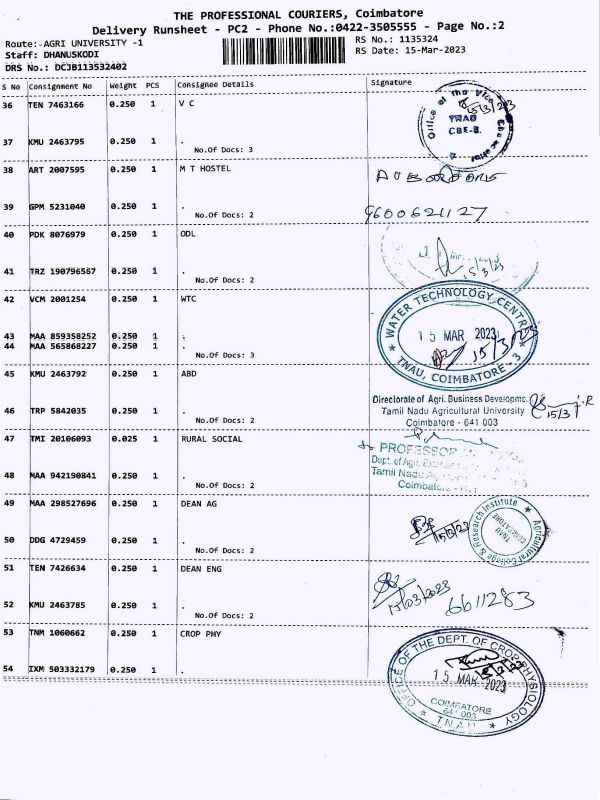 THE PROFESSIONAL COURIERS, Coimbatore
Delivery Runsheet - PC2 - Phone No.:0422-3505555 - Page No.:2
Route:-AGRI UNIVERSITY -1
RS No.: 1135324
Staff: DHANUSKODI
RS Date: 15-Mar-2023
DRS No.: DCJB113532402
S No Consignment No Weight PCS Consignee Details Signature
36 TEN 7463166 0.250 1 V C
Office of the Vice Chancellor
15/3/23
TNAU
CBE-3.
37 KMU 2463795 0.250 1 .
No.Of Docs: 3
38 ART 2007595 0.250 1 M T HOSTEL
39 GPM 5231040 0.250 1 .
No.Of Docs: 2
9600621127
40 PDK 8076979 0.250 1 ODL
15/3/23
41 TRZ 190796567 0.250 1 .
No.Of Docs: 2
42 VCM 2001254 0.250 1 WTC
WATER TECHNOLOGY CENTRE
15 MAR 2023
15/3/23
TNAU, COIMBATORE - 3
43 MAA 859358252 0.250 1 .
44 MAA 565868227 0.250 1 .
No.Of Docs: 3
45 KMU 2463792 0.250 1 ABD
Directorate of Agri. Business Developme.
Tamil Nadu Agricultural University
Coimbatore - 641 003
15/3
46 TRP 5842035 0.250 1 .
No.Of Docs: 2
47 TMI 20106093 0.025 1 RURAL SOCIAL
PROFESSOR
Dept. of Agil.
Tamil Nadu
Coimbatore
48 MAA 942190841 0.250 1 .
No.Of Docs: 2
49 MAA 298527696 0.250 1 DEAN AG
15/3/23
Agricultural College & Research Institute
TNAU
COIMBATORE
50 DDG 4729459 0.250 1 .
No.Of Docs: 2
51 TEN 7426634 0.250 1 DEAN ENG
15/03/2023
6611283
52 KMU 2463785 0.250 1 .
No.Of Docs: 2
53 TNM 1060662 0.250 1 CROP PHY
OFFICE OF THE DEPT. OF CROP PHYSIOLOGY
15 MAR 2023
15/3/23
COIMBATORE
641 003
T.N.A.U
54 IXM 503332179 0.250 1 .